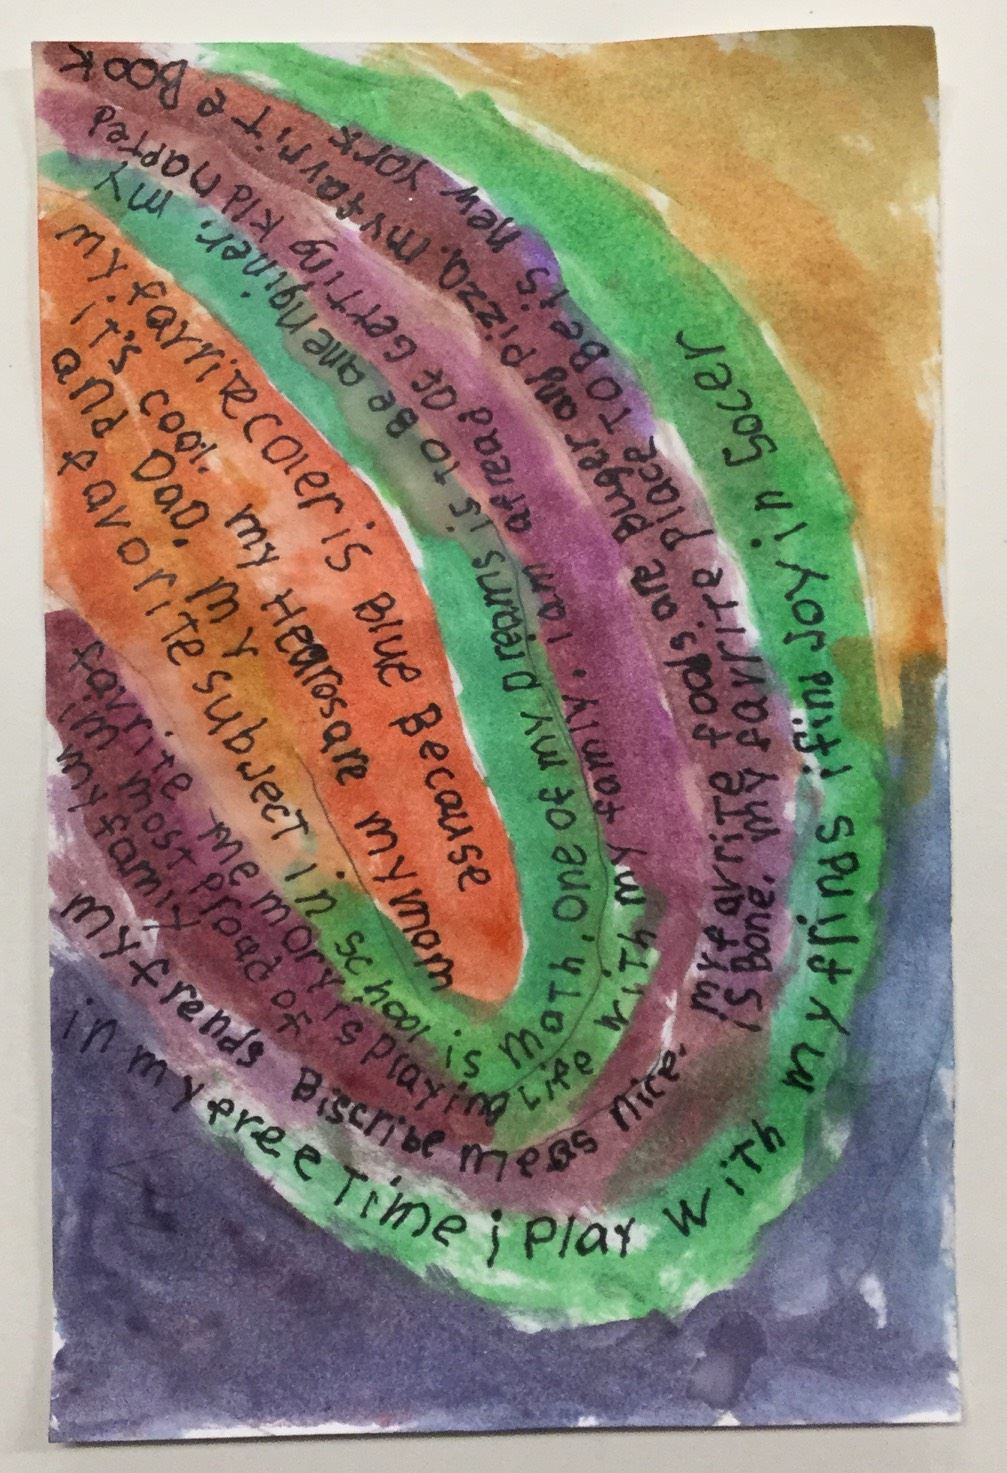 my favriae coler is Blue Because
it's cool. my Hearos are my mom
and Dad. my
favorite subject in school is Math. one of my Dreams is to Be an enginner. my
favrite memory is playing Life with my family. i am afread of Getting kidnapted
im most proad of
my family
my frends Biscribe me as nice.
my favrite foods are Buger and Pizza. my favrite Book
is Bone. my favrite place TO Be is new york
in my free Time i play with my ffjinds ifind joy in Socer